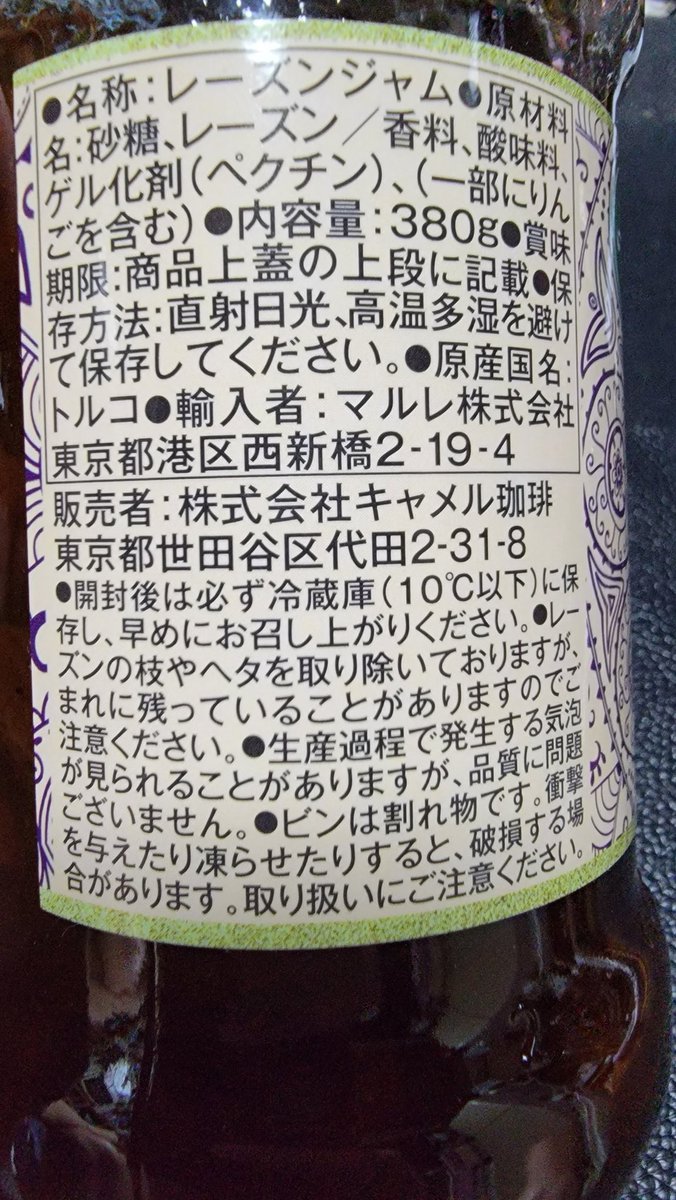 ●名称:レーズンジャム●原材料
名:砂糖、レーズン/香料、酸味料、
ゲル化剤(ペクチン)、(一部にりん
ごを含む)●内容量:380g●賞味
期限:商品上蓋の上段に記載●保
存方法:直射日光、高温多湿を避け
て保存してください。●原産国名:
トルコ●輸入者:マルレ株式会社
東京都港区西新橋2-19-4
販売者:株式会社キャメル珈琲
東京都世田谷区代田2-31-8
●開封後は必ず冷蔵庫(10℃以下)に保
存し、早めにお召し上がりください。●レー
ズンの枝やヘタを取り除いておりますが、
まれに残っていることがありますのでご
注意ください。●生産過程で発生する気泡
が見られることがありますが、品質に問題
ございません。●ビンは割れ物です。衝撃
を与えたり凍らせたりすると、破損する場
合があります。取り扱いにご注意ください。